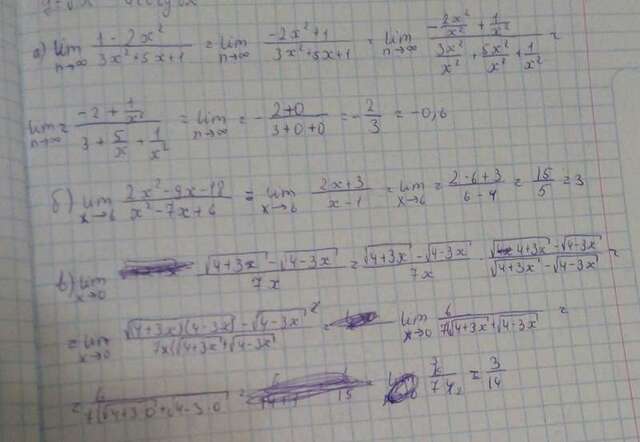 а) lim n→∞ (1-2x²)/(3x²+5x+1) = lim n→∞ (-2x²+1)/(3x²+5x+1) = lim n→∞ (-2x²/x² + 1/x²)/(3x²/x² + 5x²/x² + 1/x²) =
lim n→∞ = (-2 + 1/x²)/(3 + 5/x + 1/x²) = lim n→∞ = -(2+0)/(3+0+0) = -2/3 = -0,6
б) lim x→6 (2x²-9x-18)/(x²-7x+6) = lim x→6 (2x+3)/(x-1) = lim x→6 = (2·6+3)/(6-1) = 15/5 = 3
в) lim x→0 (√4+3x - √4-3x)/7x = (√4+3x - √4-3x)/7x · (√4+3x - √4-3x)/(√4+3x - √4-3x) =
= lim x→0 (√(4+3x)(4-3x) - √4-3x²)/(7x(√4+3x + √4-3x)) = lim x→0 6/(7(√4+3x + √4-3x) =
= 6/(7(√4+3·0 + √4-3·0) = 3/14